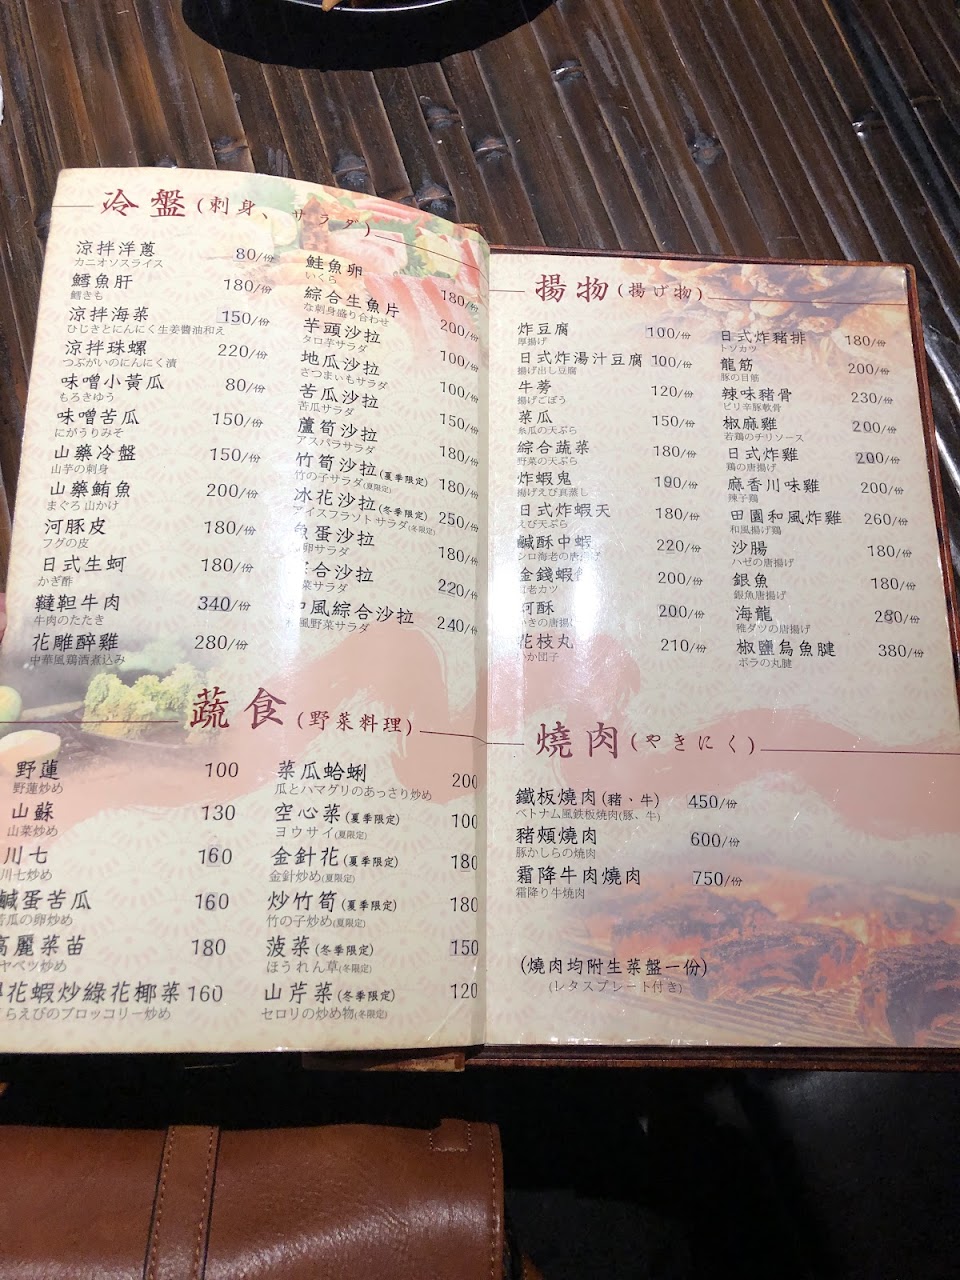 冷盤(刺身、サラダ)
涼拌洋蔥 80/份
カニオソスライス
鱈魚肝 180/份
鱈きも
涼拌海菜 150/份
ひじきとにんにく生姜醬油和え
涼拌珠螺 220/份
つぶがいのにんにく漬
味噌小黃瓜 80/份
もろきゆう
味噌苦瓜 150/份
にがうりみそ
山藥冷盤 150/份
山芋の刺身
山藥鮪魚 200/份
まぐろ山かけ
河豚皮 180/份
フグの皮
日式生蚵 180/份
かぎ酢
韃靼牛肉 340/份
牛肉のたたき
花雕醉雞 280/份
中華風鶏酒煮込み
鮭魚卵 180/份
いくら
綜合生魚片 200/份
な刺身盛り合わせ
芋頭沙拉 100/份
タロ芋サラダ
地瓜沙拉 100/份
さつまいもサラダ
苦瓜沙拉 150/份
苦瓜サラダ
蘆筍沙拉 180/份
アスパラサラダ
竹筍沙拉(夏季限定) 180/份
竹の子サラダ(夏限定)
冰花沙拉(冬季限定) 250/份
アイスフラソト サラダ(冬限定)
魚蛋沙拉 180/份
卵サラダ
合沙拉 220/份
菜サラダ
和風綜合沙拉 240/份
風野菜サラダ
蔬食(野菜料理)
野蓮 100
野蓮炒め
山蘇 130
山菜炒め
川七 160
川七炒め
鹹蛋苦瓜 160
苦瓜の卵炒め
高麗菜苗 180
ャベツ炒め
花蝦炒綠花椰菜 160
らえびのブロッコリー炒め
菜瓜蛤蜊 200
瓜とハマグリのあっさり炒め
空心菜(夏季限定) 100
ヨウサイ(夏限定)
金針花(夏季限定) 180
金針炒め(夏限定)
炒竹筍(夏季限定) 180
竹の子炒め(夏限定)
菠菜(冬季限定) 150
ほうれん草(冬限定)
山芹菜(冬季限定) 120
セロリの炒め物(冬限定)
揚物(揚げ物)
炸豆腐 100/份
厚揚げ
日式炸湯汁豆腐 100/份
揚げ出し豆腐
牛蒡 120/份
揚げごぼう
菜瓜 150/份
糸瓜の天ぷら
綜合蔬菜 180/份
野菜の天ぷら
炸蝦鬼 190/份
揚げえび真蒸し
日式炸蝦天 180/份
えび天ぷら
鹹酥中蝦 220/份
シロ海老の唐揚げ
金錢蝦餅 200/份
老カツ
蚵酥 200/份
かきの唐揚げ
花枝丸 210/份
いか団子
日式炸豬排 180/份
トソカツ
龍筋 200/份
豚の目筋
辣味豬骨 230/份
ピリ辛豚軟骨
椒麻雞 200/份
若鶏のチリソース
日式炸雞 200/份
鶏の唐揚げ
麻香川味雞 200/份
辣子鶏
田園和風炸雞 260/份
和風揚げ鶏
沙腸 180/份
ハゼの唐揚げ
銀魚 180/份
銀魚唐揚げ
海龍 280/份
稚ダツの唐揚げ
椒鹽烏魚腱 380/份
ボラの丸腱
燒肉(やきにく)
鐵板燒肉(豬、牛) 450/份
ベトナム風鉄板焼肉(豚、牛)
豬頰燒肉 600/份
豚かしらの焼肉
霜降牛肉燒肉 750/份
霜降り牛焼肉
(燒肉均附生菜盤一份)
(レタスプレート付き)